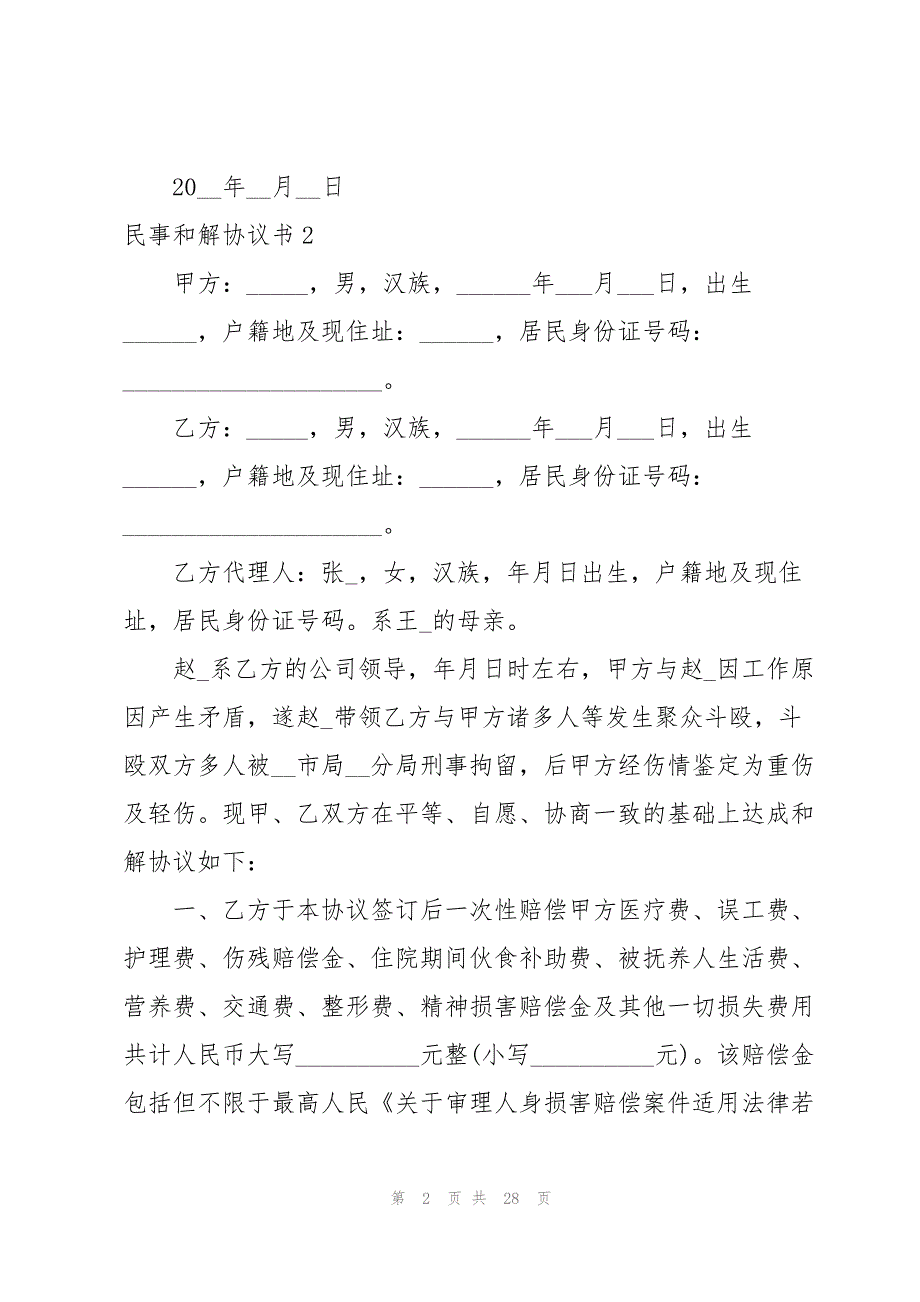 20__年__月__日
民事和解协议书2
甲方：_____，男，汉族，______年___月___日，出生
______，户籍地及现住址：______，居民身份证号码：
_____________________。
乙方：_____，男，汉族，______年___月___日，出生
______，户籍地及现住址：______，居民身份证号码：
_____________________。
乙方代理人：张_，女，汉族，年月日出生，户籍地及现住
址，居民身份证号码。系王_的母亲。
赵_系乙方的公司领导，年月日时左右，甲方与赵_因工作原
因产生矛盾，遂赵_带领乙方与甲方诸多人等发生聚众斗殴，斗
殴双方多人被__市局__分局刑事拘留，后甲方经伤情鉴定为重伤
及轻伤。现甲、乙双方在平等、自愿、协商一致的基础上达成和
解协议如下：
一、乙方于本协议签订后一次性赔偿甲方医疗费、误工费、
护理费、伤残赔偿金、住院期间伙食补助费、被抚养人生活费、
营养费、交通费、整形费、精神损害赔偿金及其他一切损失费用
共计人民币大写__________元整(小写__________元)。该赔偿金
包括但不限于最高人民《关于审理人身损害赔偿案件适用法律若
第 2 页 共 28 页